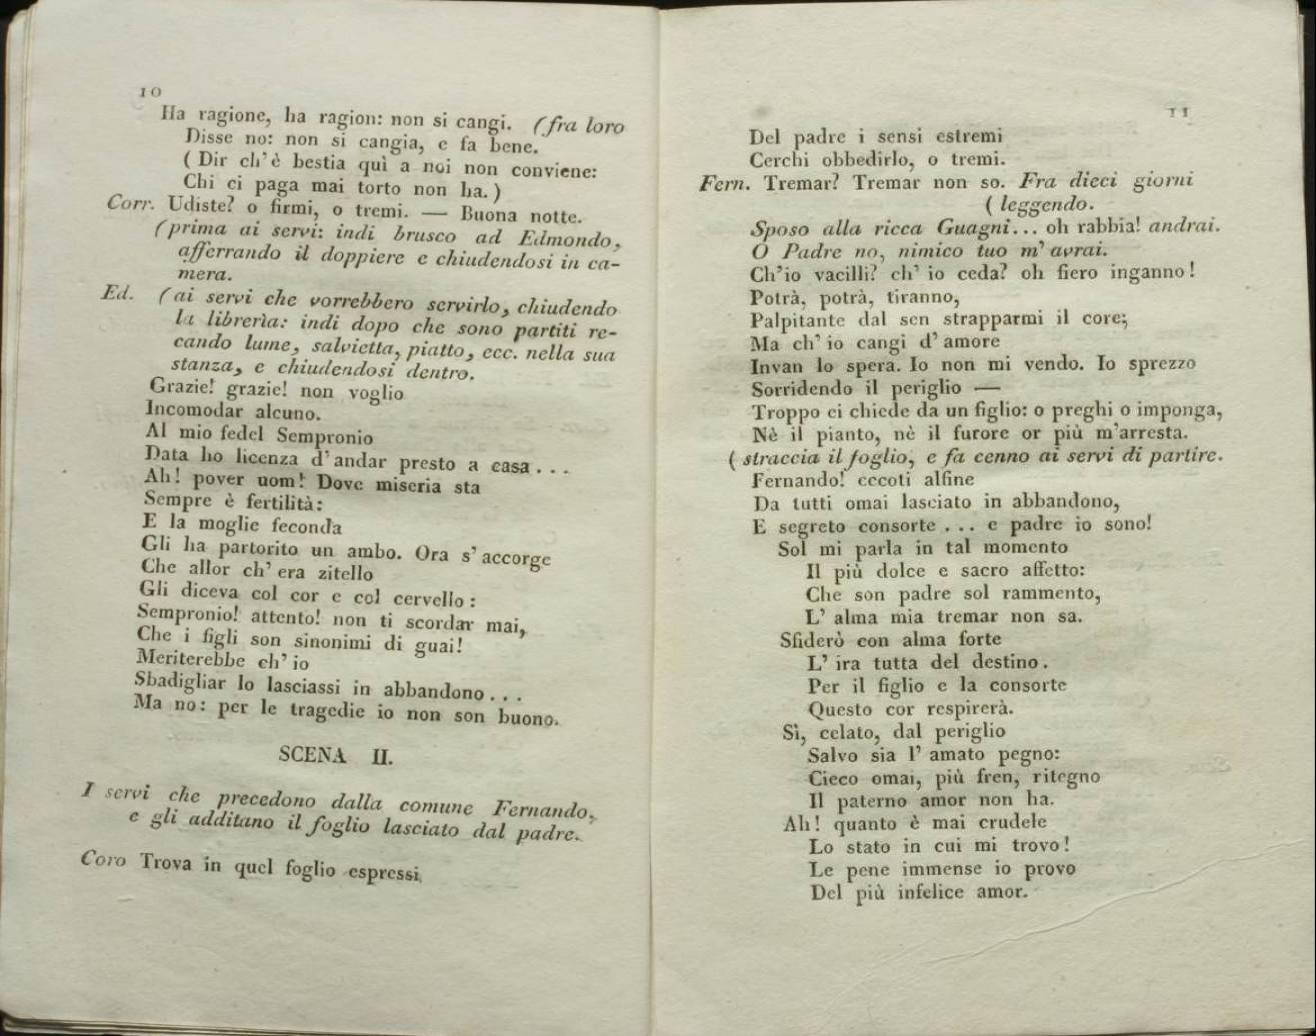 10
Ha ragione, ha ragion: non si cangi. (fra loro
Disse no: non si cangia, e fa bene.
( Dir ch'è bestia quì a noi non conviene:
Chi ci paga mai torto non ha. )
Corr. Udiste? o firmi, o tremi. — Buona notte.
(prima ai servi: indi brusco ad Edmondo,
afferrando il doppiere e chiudendosi in ca-
mera.
Ed. (ai servi che vorrebbero servirlo, chiudendo
la librerìa: indi dopo che sono partiti re-
cando lume, salvietta, piatto, ecc. nella sua
stanza, e chiudendosi dentro.
Grazie! grazie! non voglio
Incomodar alcuno.
Al mio fedel Sempronio
Data ho licenza d'andar presto a casa . . .
Ah! pover uom! Dove miseria sta
Sempre è fertilità:
E la moglie feconda
Gli ha partorito un ambo. Ora s'accorge
Che allor ch'era zitello
Gli diceva col cor e col cervello :
Sempronio! attento! non ti scordar mai,
Che i figli son sinonimi di guai!
Meriterebbe ch' io
Sbadigliar lo lasciassi in abbandono . . .
Ma no: per le tragedie io non son buono.
SCENA II.
I servi che precedono dalla comune Fernando,
e gli additano il foglio lasciato dal padre.
Coro Trova in quel foglio espressi
11
Del padre i sensi estremi
Cerchi obbedirlo, o tremi.
Fern. Tremar? Tremar non so. Fra dieci giorni
( leggendo.
Sposo alla ricca Guagni... oh rabbia! andrai.
O Padre no, nimico tuo m' avrai.
Ch'io vacilli? ch' io ceda? oh fiero inganno!
Potrà, potrà, tiranno,
Palpitante dal sen strapparmi il core;
Ma ch' io cangi d' amore
Invan lo spera. Io non mi vendo. Io sprezzo
Sorridendo il periglio —
Troppo ei chiede da un figlio: o preghi o imponga,
Nè il pianto, nè il furore or più m'arresta.
( straccia il foglio, e fa cenno ai servi di partire.
Fernando! eccoti alfine
Da tutti omai lasciato in abbandono,
E segreto consorte . . . e padre io sono!
Sol mi parla in tal momento
Il più dolce e sacro affetto:
Che son padre sol rammento,
L' alma mia tremar non sa.
Sfiderò con alma forte
L' ira tutta del destino.
Per il figlio e la consorte
Questo cor respirerà.
Sì, celato, dal periglio
Salvo sia l' amato pegno:
Cieco omai, più fren, ritegno
Il paterno amor non ha.
Ah! quanto è mai crudele
Lo stato in cui mi trovo!
Le pene immense io provo
Del più infelice amor.